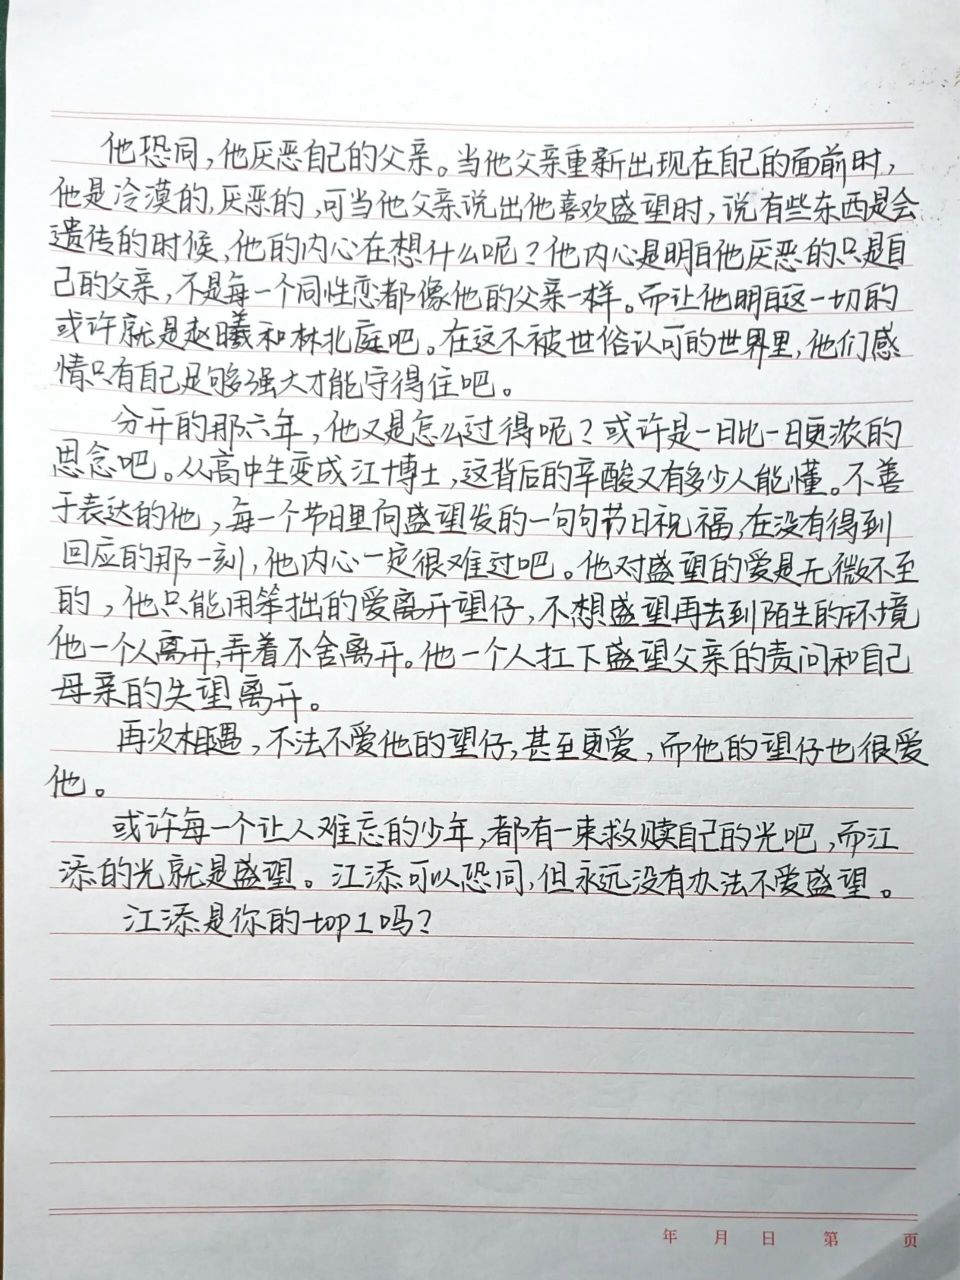 他恐同，他厌恶自己的父亲。当他父亲重新出现在自己的面前时，
他是冷漠的，厌恶的，可当他父亲说出他喜欢盛望时，说有些东西是会
遗传的时候，他的内心在想什么呢？他内心是明白他厌恶的只是自
己的父亲，不是每一个同性恋都像他的父亲一样。而让他明白这一切的
或许就是赵曦和林北庭吧。在这不被世俗认可的世界里，他们感
情只有自己足够强大才能守得住吧。
分开的那六年，他又是怎么过得呢？或许是一日比一日更浓的
思念吧。从高中生变成江博士，这背后的辛酸又有多少人能懂。不善
于表达的他，每一个节日里向盛望发的一句句节日祝福，在没有得到
回应的那一刻，他内心一定很难过吧。他对盛望的爱是无微不至
的，他只能用笨拙的爱离开望仔，不想盛望再去到陌生的环境
他一个人离开，弄着不舍离开。他一个人扛下盛望父亲的责问和自己
母亲的失望离开。
再次相遇，不法不爱他的望仔，甚至更爱，而他的望仔也很爱
他。
或许每一个让人难忘的少年，都有一束救赎自己的光吧，而江
添的光就是盛望。江添可以恐同，但永远没有办法不爱盛望。
江添是你的top1吗？
年 月 日 第 页